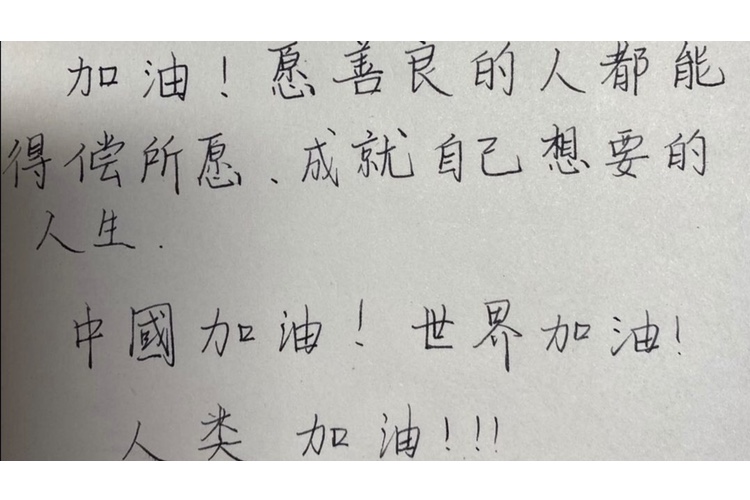 加油！愿善良的人都能
得偿所愿、成就自己想要的
人生.
中國加油！世界加油！
人类加油！！！